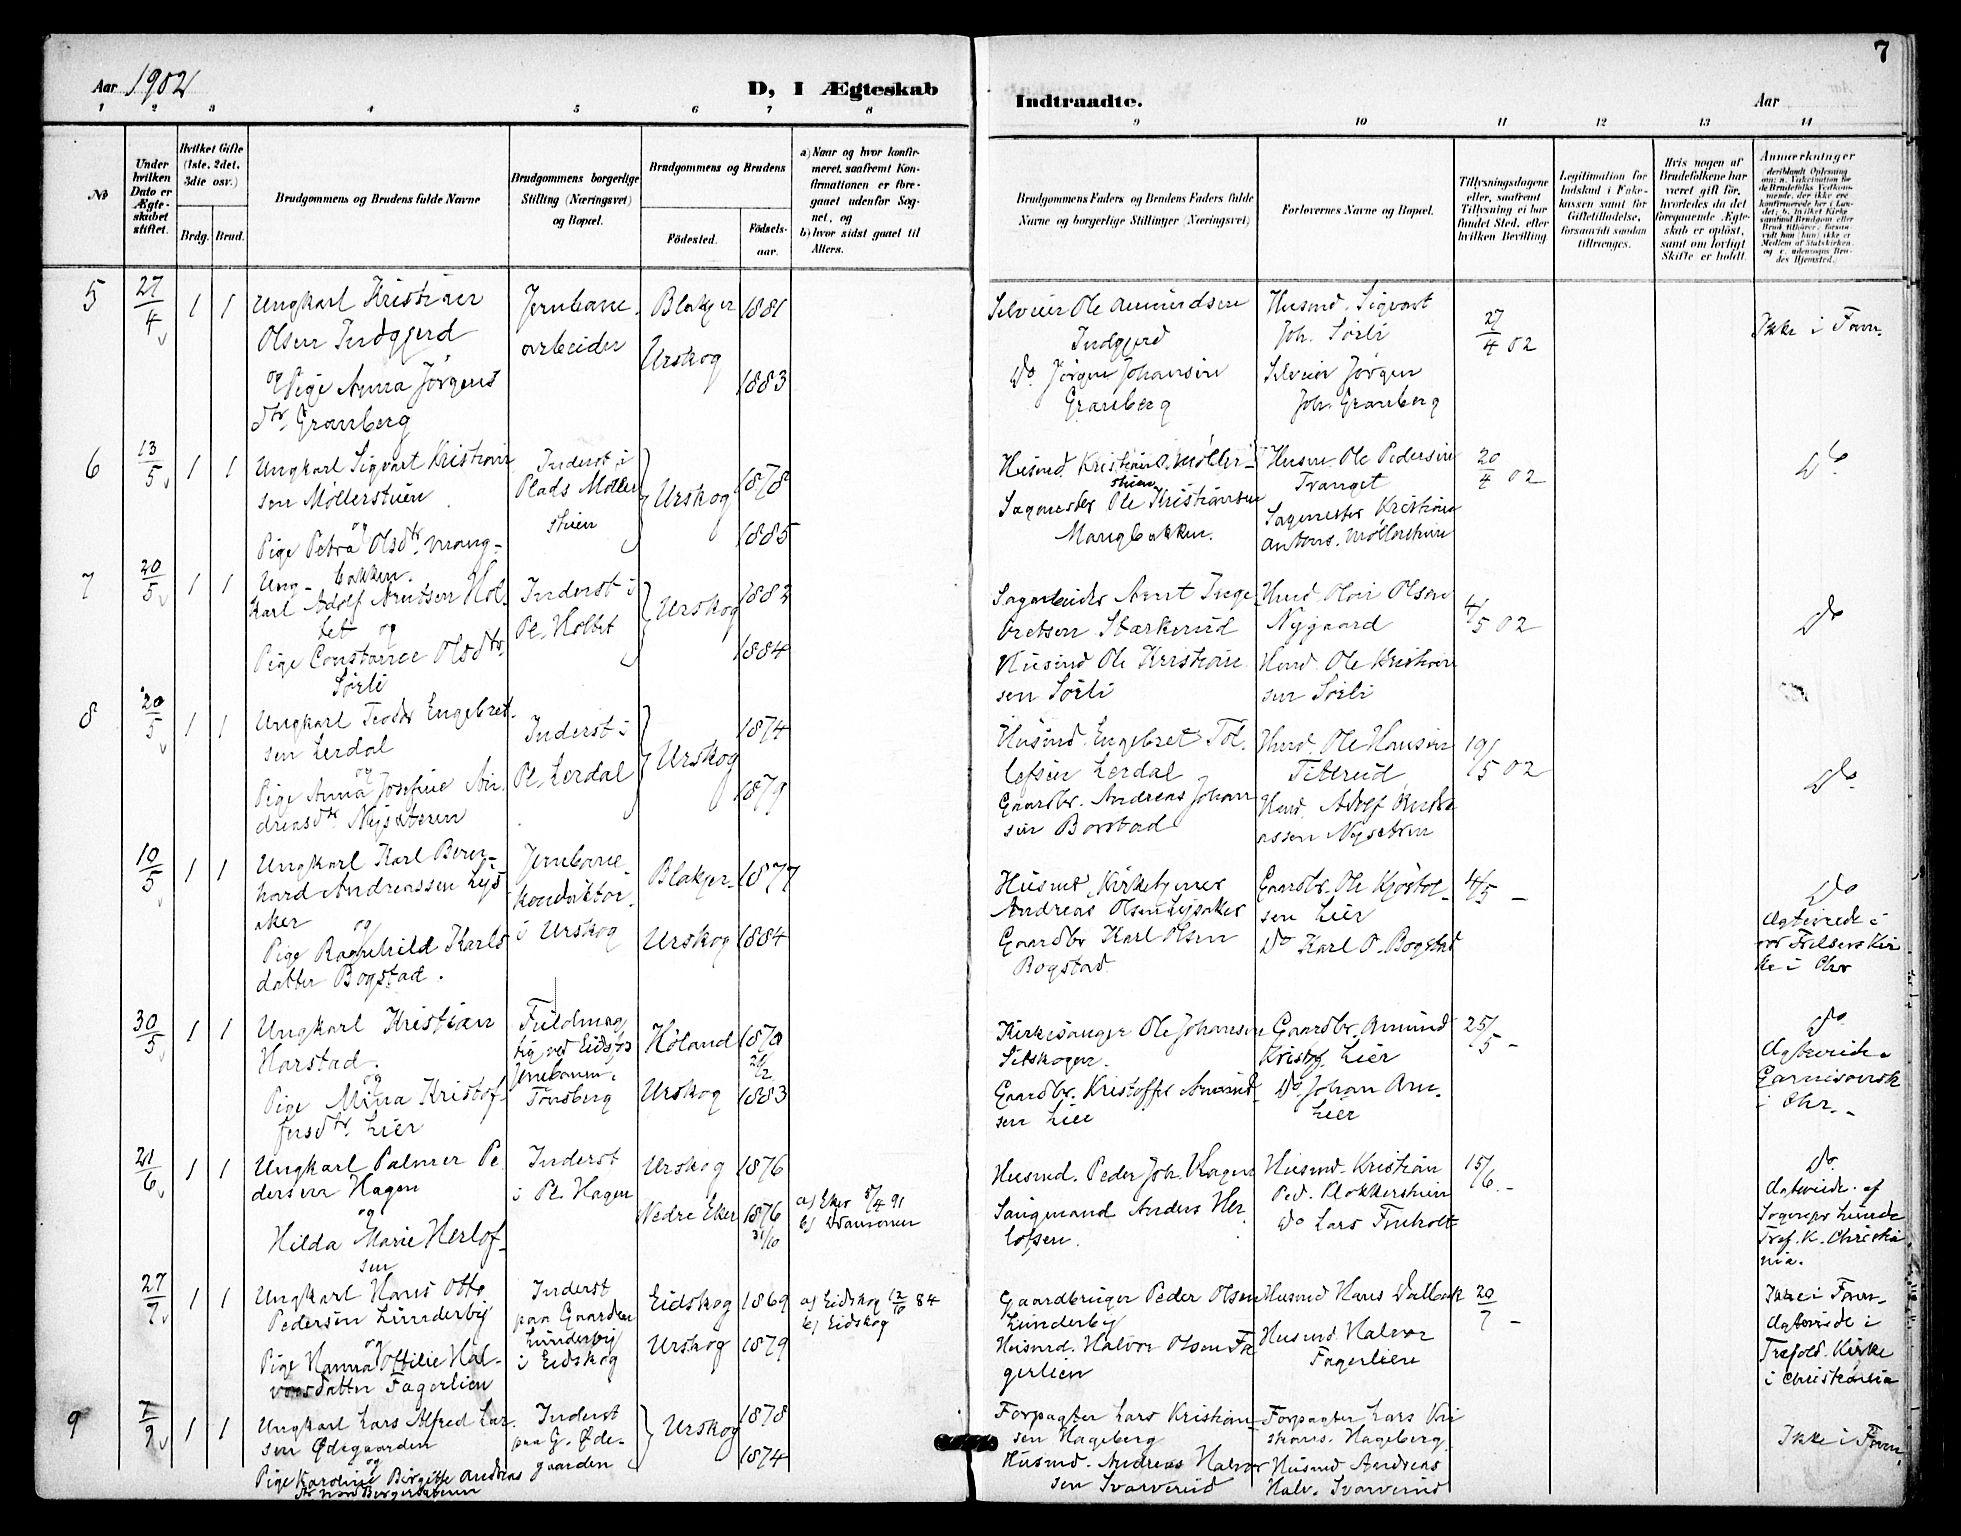 7
Aar 1902
D, I Ægteskab
Indtraadte.
Aar
1 2 3 4 5 6 7 8
9 10 11 12 13 14
No
Under hvilken Dato er Ægteskabet stiftet.
Hvilket Gifte (1ste, 2det, 3die osv.)
Brdg. Brud.
Brudgommens og Brudens fulde Navne
Brudgommens borgerlige Stilling (Næringsvei) og Bopæl.
Brudgommens og Brudens
Fødested.
Fødselsaar.
a) Naar og hvor konfirmeret, saafremt Konfirmationen er foregaaet udenfor Sognet, og
b) hvor sidst gaaet til Alters.
Brudgommens Faders og Brudens Faders fulde Navne og borgerlige Stillinger (Næringsvei)
Forlovernes Navne og Bopæl.
Tillysningsdagene eller, saafremt Tillysning ei har fundet Sted, efter hvilken Bevilling.
Legitimation for Indskud i Enkekassen samt for Giftetilladelse, forsaavidt saadan tiltrænges.
Hvis nogen af Brudefolkene har været gift før, hvorledes da det foregaaende Ægteskab er opløst, samt om lovligt Skifte er holdt.
Anmærkninger
5
27/4
1 1
Ungkarl Kristian
Olsen Indgjerd
og Pige Anna Jørgens
dtr. Granberg
Jernbane
arbeider
Blakjer 1881
Urskog 1883
Selveier Ole Amundsen
Indgjerd
Do Jørgen Johansen
Granberg
Husmd. Sigvart
Joh. Sørli
Selveier Jørgen
Joh. Granberg
27/4 02
Ikke i Favn.
6
13/5
1 1
Ungkarl Sigvart Kristian
sen Møllerstuen
og
Pige Petra Olsdtr. Mang-
bakken.
Inderst i
Plads Møller
stuen
Urskog
1878
1885
Husmd. Kristian A. Møller-
stuen
Sagmester Ole Kristiansen
Mangbakken.
Husm. Ole Pedersen
Tranget
Sagmester Kristian
Antons. Møllerstuen
20/4 02
Do
7
20/5
1 1
Ung-
karl Adolf Arntsen Hol-
tet og
Pige Constance Olsdtr.
Sørli
Inderst i
Pl. Holtet
Urskog
1882
1884
Sagarbeider Arnt Inge
bretsen Starkerud
Husmd Ole Kristian
sen Sørli
Husmd Olai Olsen
Nygaard
Husmd. Ole Kristian
sen Sørli
4/5 02
Do
8
20/5
1 1
Ungkarl Teodor Engebret-
sen Lerdal
og
Pige Anna Josefine An
dreasdtr. Nysæteren
Inderst i
Pl. Lerdal
Urskog
1874
1879
Husmd. Engebret Tol-
lefsen Lerdal
Gaardbr. Andreas Johan
sen Borstad
Husmd. Ole Hansen
Titterud
Husmd. Adolf Andre
assen Nysetren
19/5 02
Do
10/5
1 1
Ungkarl Karl Bern-
hard Andreassen Lys
aker og
Pige Ragnhild Karls
datter Bogstad.
Jernbane
konduktør
i Urskog
Blakjer 1877
Urskog 1884
Husmd, Kirketjener
Andreas Olsen Lysaker
Gaardbr Karl Olsen
Bogstad
Gaardbr. Ole Kjøstol-
sen Lier
Do Karl O. Bogstad
4/5 -
Do
Agtevirede i
vor Frelsers Kir
ke i Chr
30/5
1 1
Ungkarl Kristian
Harstad.
og
Pige Mina Kristof-
fersdtr. Lier
Fuldmæg
tig ved Eidsfos
Jernbanen.
Tønsberg
Høland
Urskog 1883
Kirkesanger Ole Johansen
Setskogen.
Gaardbr. Kristoffer Amund
sen Lier
Gaardbr. Amund
Kristof. Lier
Do Johan Am.
Lier
25/5 -
Do
Agtevirede
Garnisonsk
i Chr. -
21/6
1 1
Ungkarl Palmer Pe
dersen Hagen
og
Hilda Marie Herlof-
sen
Inderst
i Pl. Hagen
Urskog 1876
Nedre Eker 1876
31/10
a) Eker 5/4 91
b) Drammen
Husmd. Peder Joh. Hagen
Saugmand Anders Her
lofsen.
Husmd. Kristian
Ped. Klokkerstuen
Do Lars Fruholt
15/6. -
Do
Agtevirede. af
Sognepr Lunde
Tref. K. Christia
nia.
27/7
1 1
Ungkarl Hans Otto
Pedersen Lunderby
og
Pige Hanna Otilie Hal-
vorsdatter Fagerlien
Inderst
paa Gaarden
Lunderby
i Eidskog
Eidskog 1869
Urskog 1879
a) Eidskog 12/10 84
b) Eidskog
Gaardbruger Peder Olsen
Lunderby
Husmd. Halvor Olsen Fa
gerlien
Husmd Hans Dalbak
Husmd. Halvor
Fagerlien
20/7 -
Ikke i Favn-
Agtevirede i
Trefold. Kirke
i Christiania
9
7/9
1 1
Ungkarl Lars Alfred Lar-
sen Ødegaarden
og
Pige Karoline Birgitte Andreas
Inderst
paa G. Øde-
gaarden
Urskog
1878
1874
Forpagter Lars Kristian-
sen Hageberg
Husmd. Andreas Halvor
sen Svarverud
Forpagter Lars Kri
stians. Hageberg
Husmd Andreas
Halv. Svarverud
Ikke i Favn.